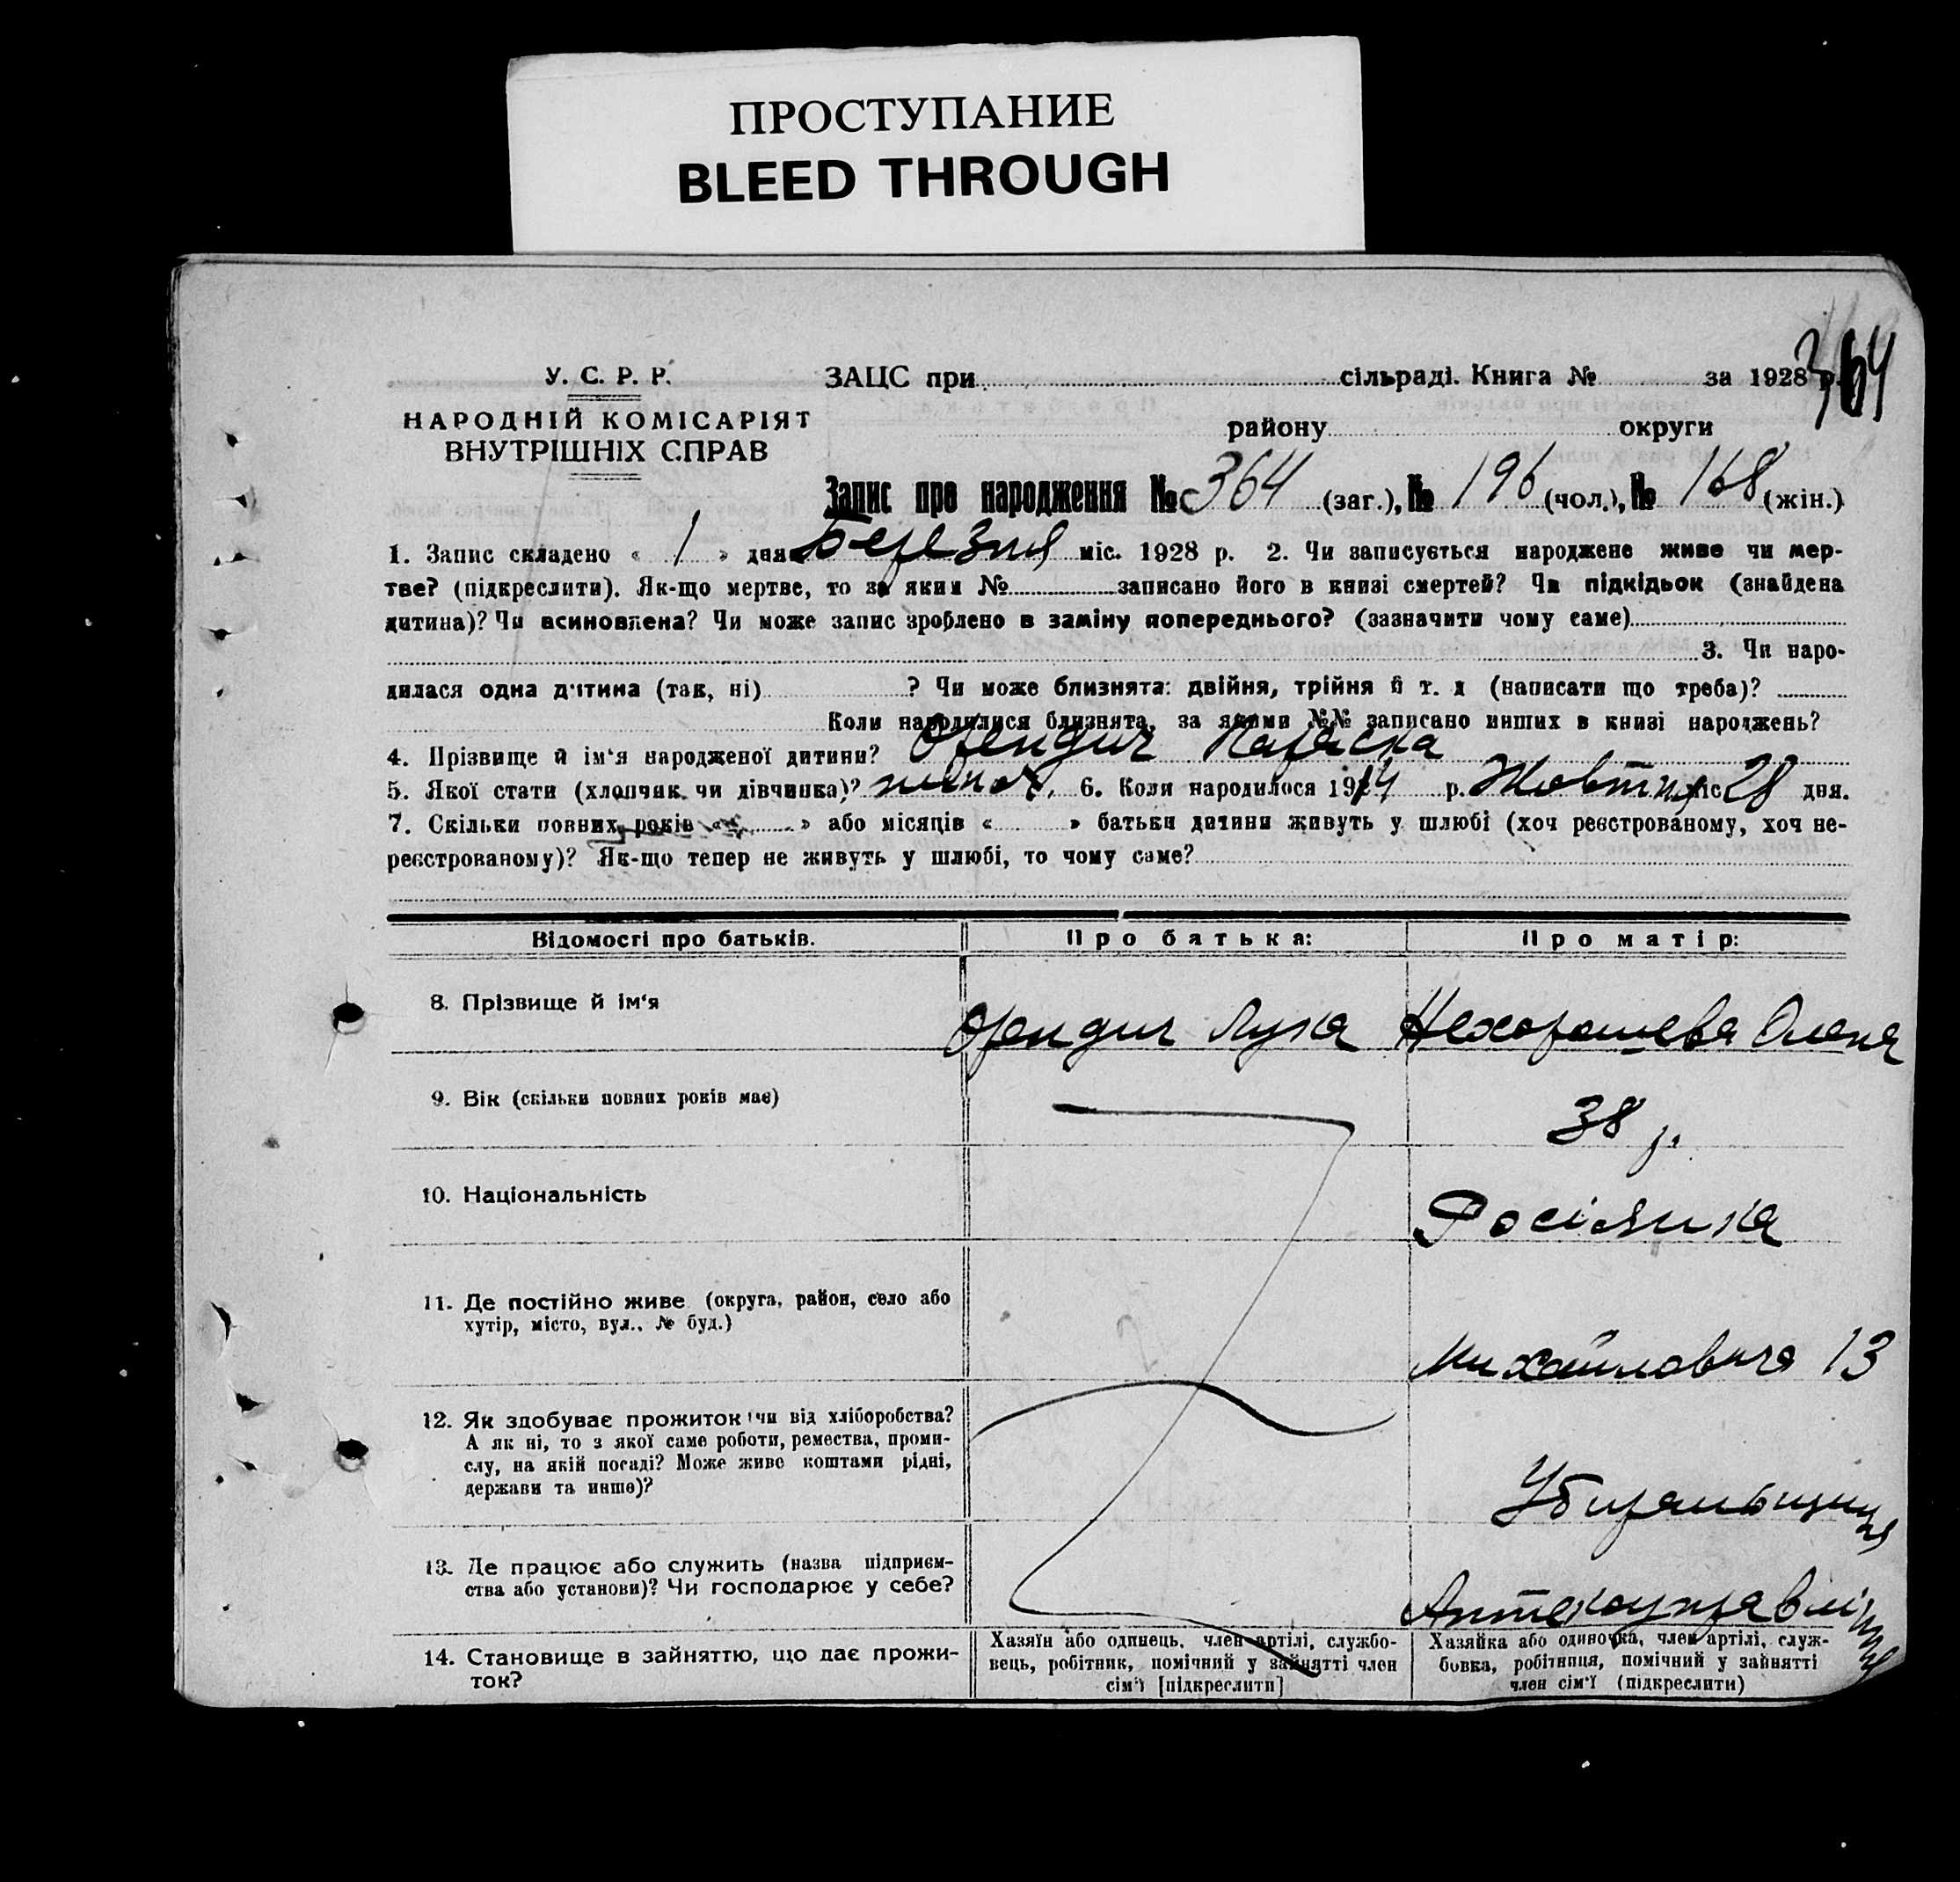 ПРОСТУПАНИЕ
BLEED THROUGH
364
У. С. Р. Р.
ЗАЦС при сільраді. Книга № за 1928 р.
НАРОДНІЙ КОМІСАРІЯТ
ВНУТРІШНІХ СПРАВ
району округи
Запис про народження № 364 (заг.), № 196 (чол.), № 168 (жін.)
1. Запис складено « 1 » дня Березня міс. 1928 р. 2. Чи записується народжене живе чи мер-
тве? (підкреслити). Як-що мертве, то за яким № записано його в книзі смертей? Чи підкідьок (знайдена
дитина)? Чи всиновлена? Чи може запис зроблено в заміну попереднього? (зазначити чому саме)
3. Чи наро-
дилася одна дитина (так, ні) ? Чи може близнята: двійня, трійня й т. д (написати що треба)?
Коли народилися близнята, за якими №№ записано инших в книзі народжень?
4. Прізвище й ім'я народженої дитини? Орендич
5. Якої статі (хлопчяк чи дівчинка)? 6. Коли народилося 1914 р. Жовтня міс 28 дня.
7. Скільки повних років « » або місяців « » батьки дитини живуть у шлюбі (хоч реєстрованому, хоч не-
реєстрованому)? Як-що тепер не живуть у шлюбі, то чому саме?
Відомості про батьків. Про батька: Про матір:
8. Прізвище й ім'я Орендич Лука Нехорошева Олена
9. Вік (скільки повних років має) 38 р.
10. Національність Росіянка
11. Де постійно живе (округа, район, село або
хутір, місто, вул., № буд.)
13
12. Як здобуває прожиток чи від хліборобства?
А як ні, то з якої саме роботи, ремества, проми-
слу, на якій посаді? Може живе коштами рідні,
держави та инше)?
Убиральщиця
13. Де працює або служить (назва підприєм-
ства або установи)? Чи господарює у себе?
Аптекоуправління
14. Становище в зайняттю, що дає прожи-
ток?
Хазяїн або одинець, член артілі, службо-
вець, робітник, помічний у зайнятті член
сім'ї [підкреслити]
Хазяйка або одиночка, член артілі, служ-
бовка, робітниця, помічний у зайнятті
член сім'ї (підкреслити)